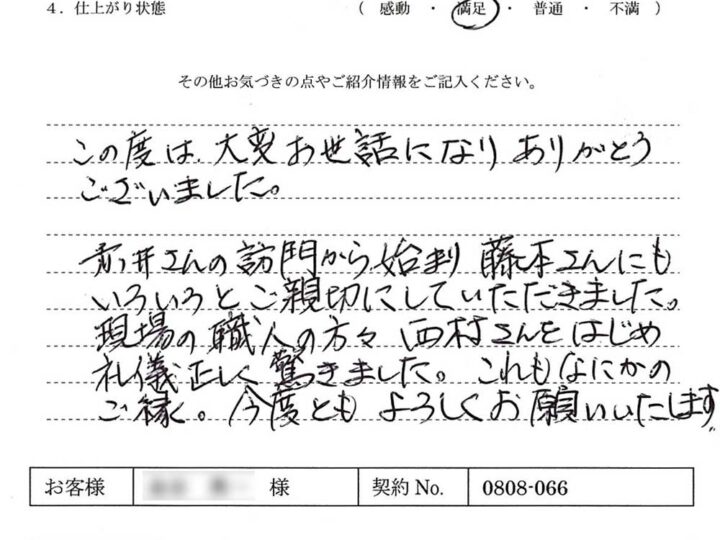 4. 仕上がり状態 ( 感動 ・ 満足 ・ 普通 ・ 不満 )
その他お気づきの点やご紹介情報をご記入ください。
この度は、大変お世話になり ありがとう
ございました。
赤井さんの訪問から始まり 藤本さんにも
いろいろとご親切にしていただきました。
現場の職人の方々 西村さんをはじめ
礼儀正しく驚きました。これもなにかの
ご縁。今度とも よろしくお願いいたします。
お客様 様 契約 No. 0808-066